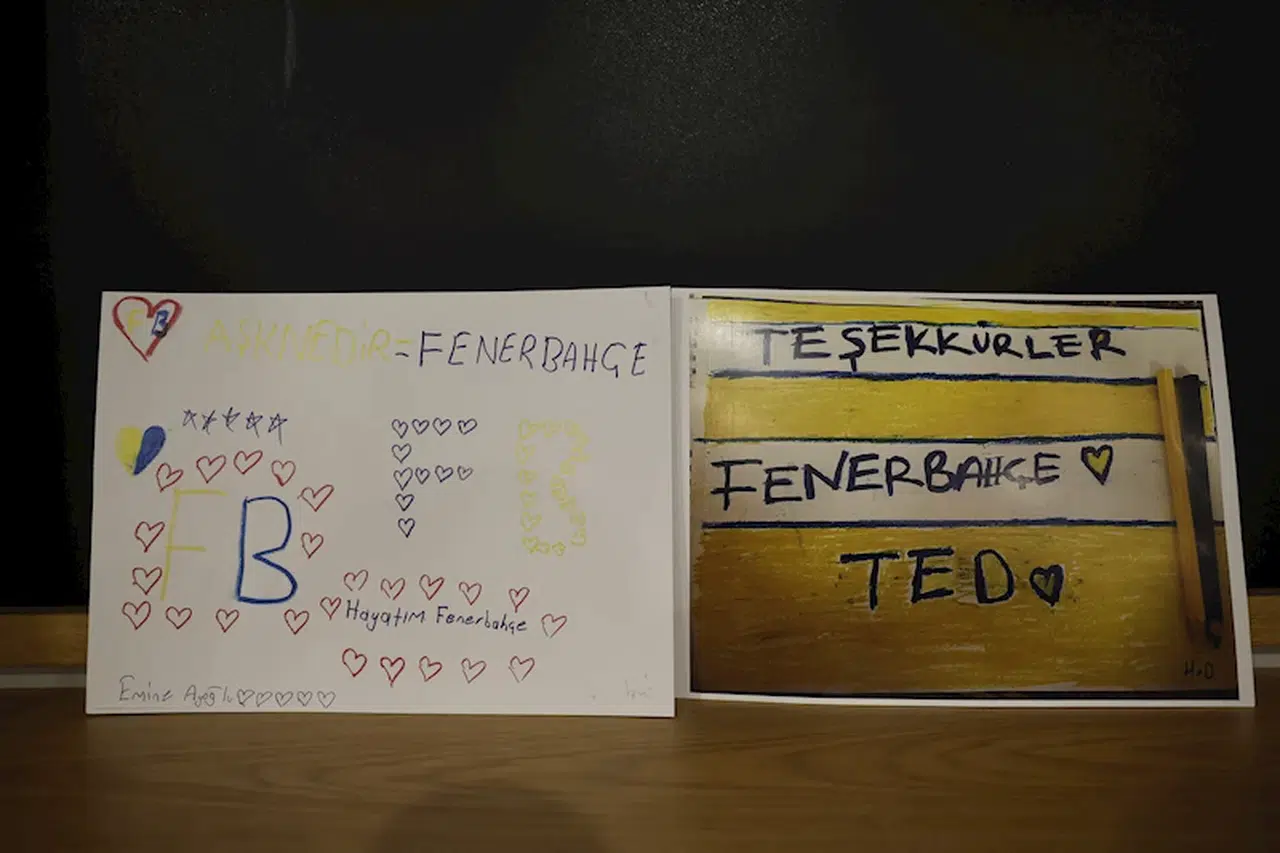 FB
AŞKNEDİR=FENERBAHÇE
FB
FB
Hayatım Fenerbahçe
Emine
TEŞEKKÜRLER
FENERBAHÇE
TED